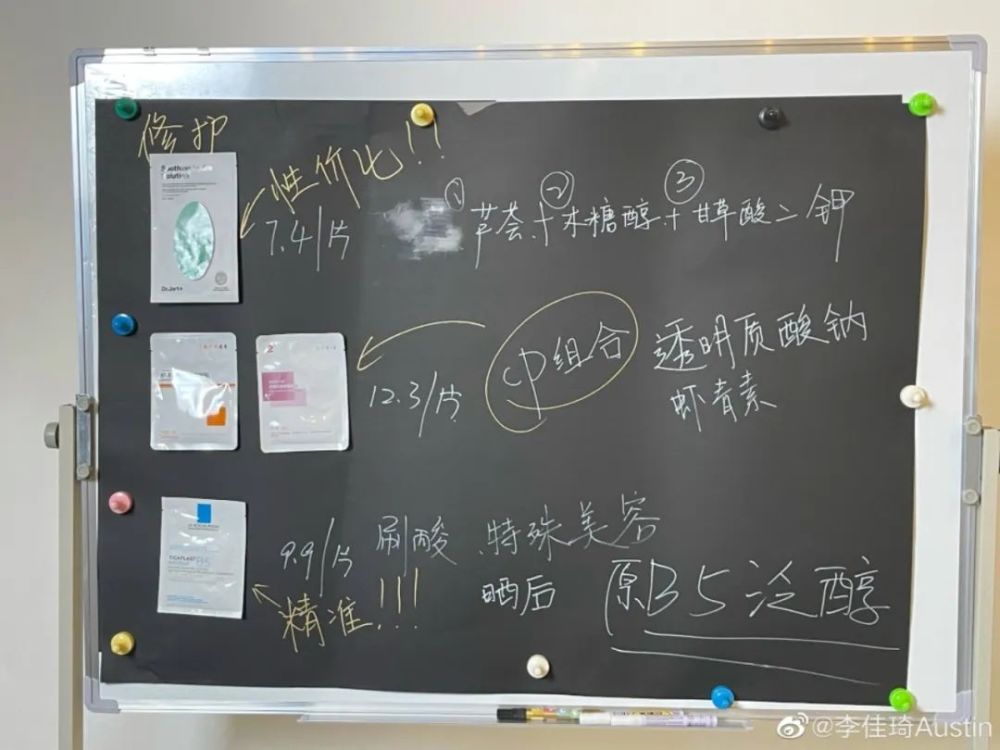 修护
性价比!!
7.4/片
① ② ③
芦荟+木糖醇+甘草酸二钾
Dr.Jart+
12.3/片
cp组合
透明质酸钠
虾青素
9.9/片
刷酸、特殊美容
晒后
精准!!!
原B5泛醇
CICAPLAST B5
@李佳琦Austin